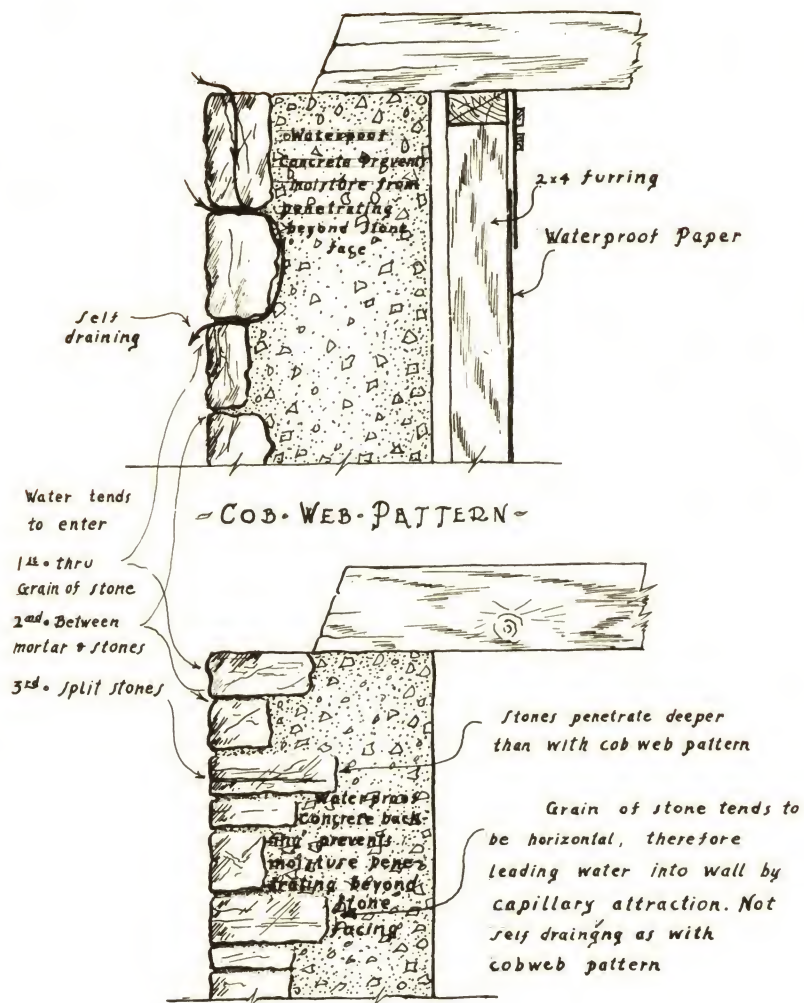 Waterpoof
Concrete Prevents
moisture from
penetrating
beyond stone
face
2x4 furring
Waterproof Paper
Self
draining
- COB-WEB-PATTERN -
Water tends
to enter
1st. thru
Grain of stone
2nd. Between
mortar & stones
3rd. split stones
Stones penetrate deeper
than with cob web pattern
Waterproof
Concrete back-
ing prevents
moisture pene-
trating beyond
stone
facing
Grain of stone tends to
be horizontal, therefore
leading water into wall by
capillary attraction. Not
self draining as with
cobweb pattern